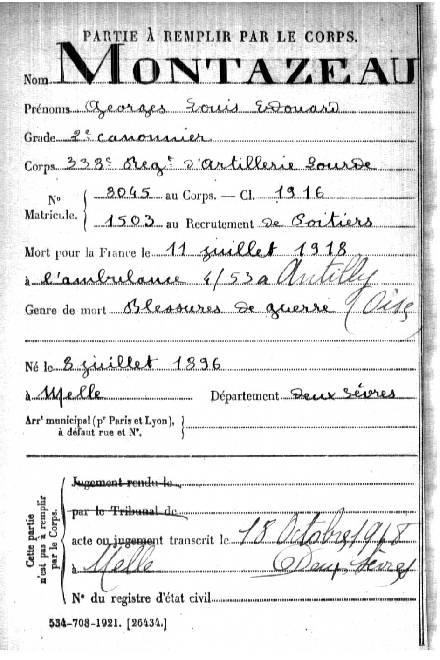 PARTIE À REMPLIR PAR LE CORPS.
Nom MONTAZEAU
Prénoms Georges Louis Edouard
Grade 2e canonnier
Corps 338e Regt d'Artillerie Lourde
No Matricule. { 8045 au Corps. — Cl. 1916
1503 au Recrutement de Poitiers
Mort pour la France le 11 juillet 1918
à l'ambulance 4/53 à Antilly
Genre de mort Blessures de guerre (Oise)
Né le 8 juillet 1896
à Melle Département Deux Sèvres
Arrt municipal (pr Paris et Lyon), à défaut rue et No. }
Cette partie n'est pas à remplir par le Corps.
Jugement rendu le
par le Tribunal de
acte ou jugement transcrit le 18 Octobre 1918
à Melle Deux Sèvres
No du registre d'état civil
534-708-1921. [26434.]